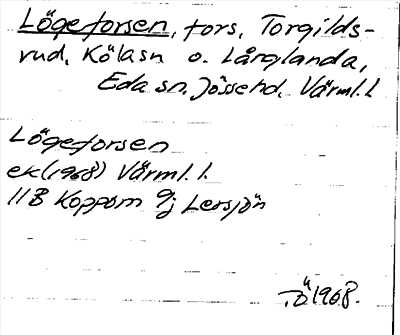 Lögeforsen, fors, Torgilds-
rud, Köla sn o. Långlanda,
Eda sn, Jösse hd, Värml. l.
Lögeforsen
ek (1968) Värml. l.
11B Koppom 9j Lersjön
T.Ö 1968.